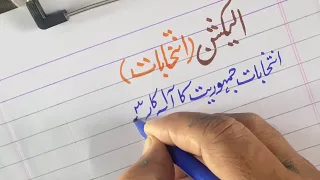 الیکشن (انتخابات)
انتخابات جمہوریت کا آلہ کار